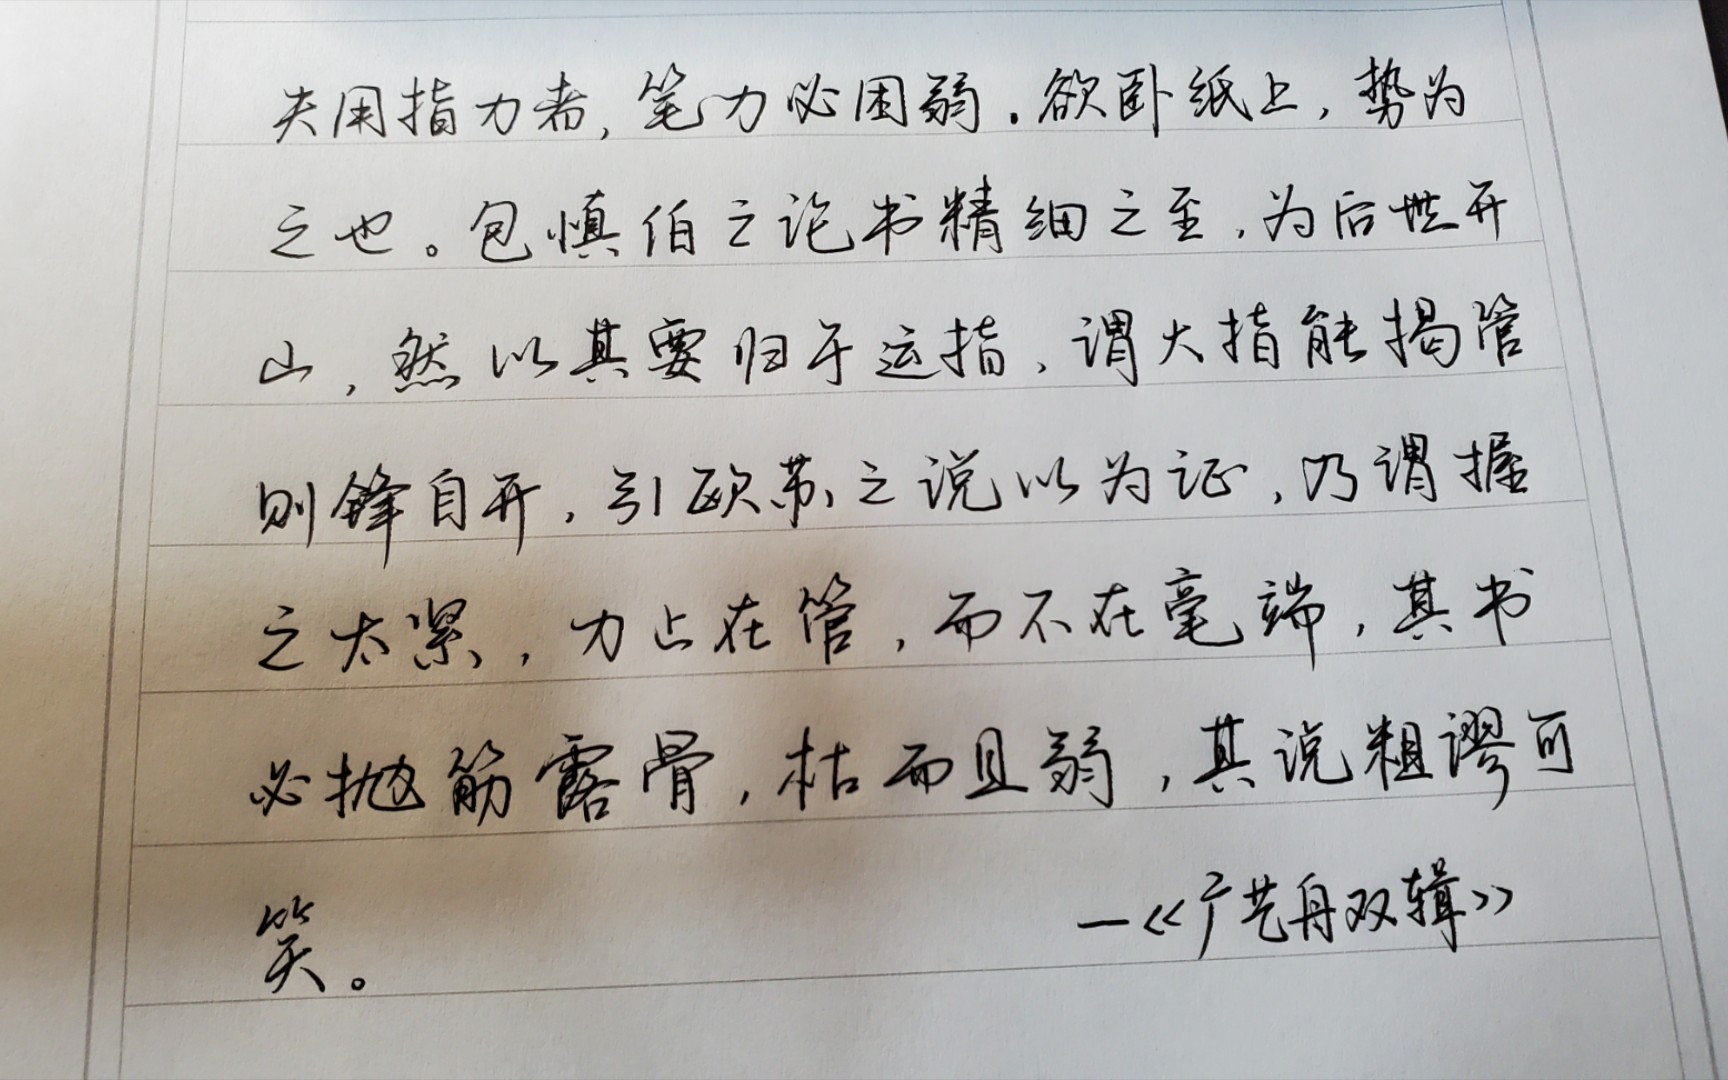 夫用指力者,笔力必困弱.欲卧纸上,势为
之也。包慎伯之论书精细之至,为后世开
山,然以其要归于运指,谓大指能揭管
则锋自开,引欧苏之说以为证,乃谓握
之太紧,力止在管,而不在毫端,其书
必抛筋露骨,枯而且弱,其说粗谬可
笑。
—《广艺舟双辑》